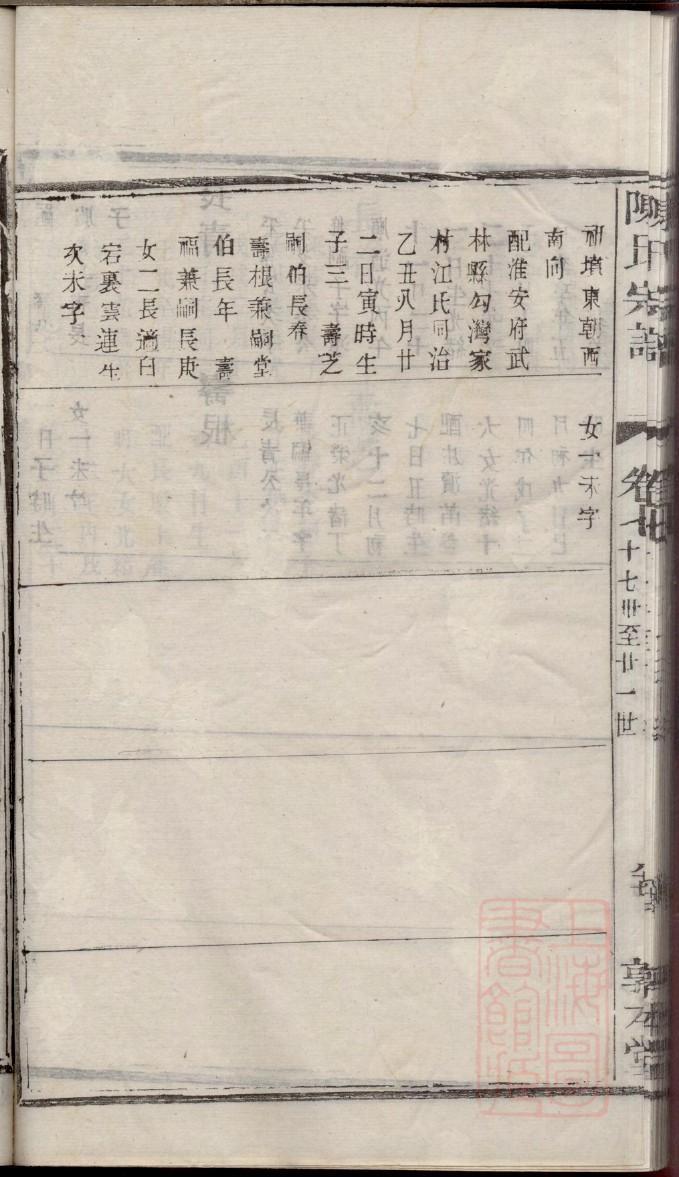 祔塡東朝西
南向
配淮安府武
林縣勾灣家
村江氏同治
乙丑八月廿
二日寅時生
子三 壽芝
嗣伯長春
壽根兼嗣堂
伯長年 壽
福兼嗣長庚
女二長適白
宕裏雲連生
次未字
女一未字
陳氏宗譜
卷七
十七世至廿一世
敦本堂
上海圖
書館藏